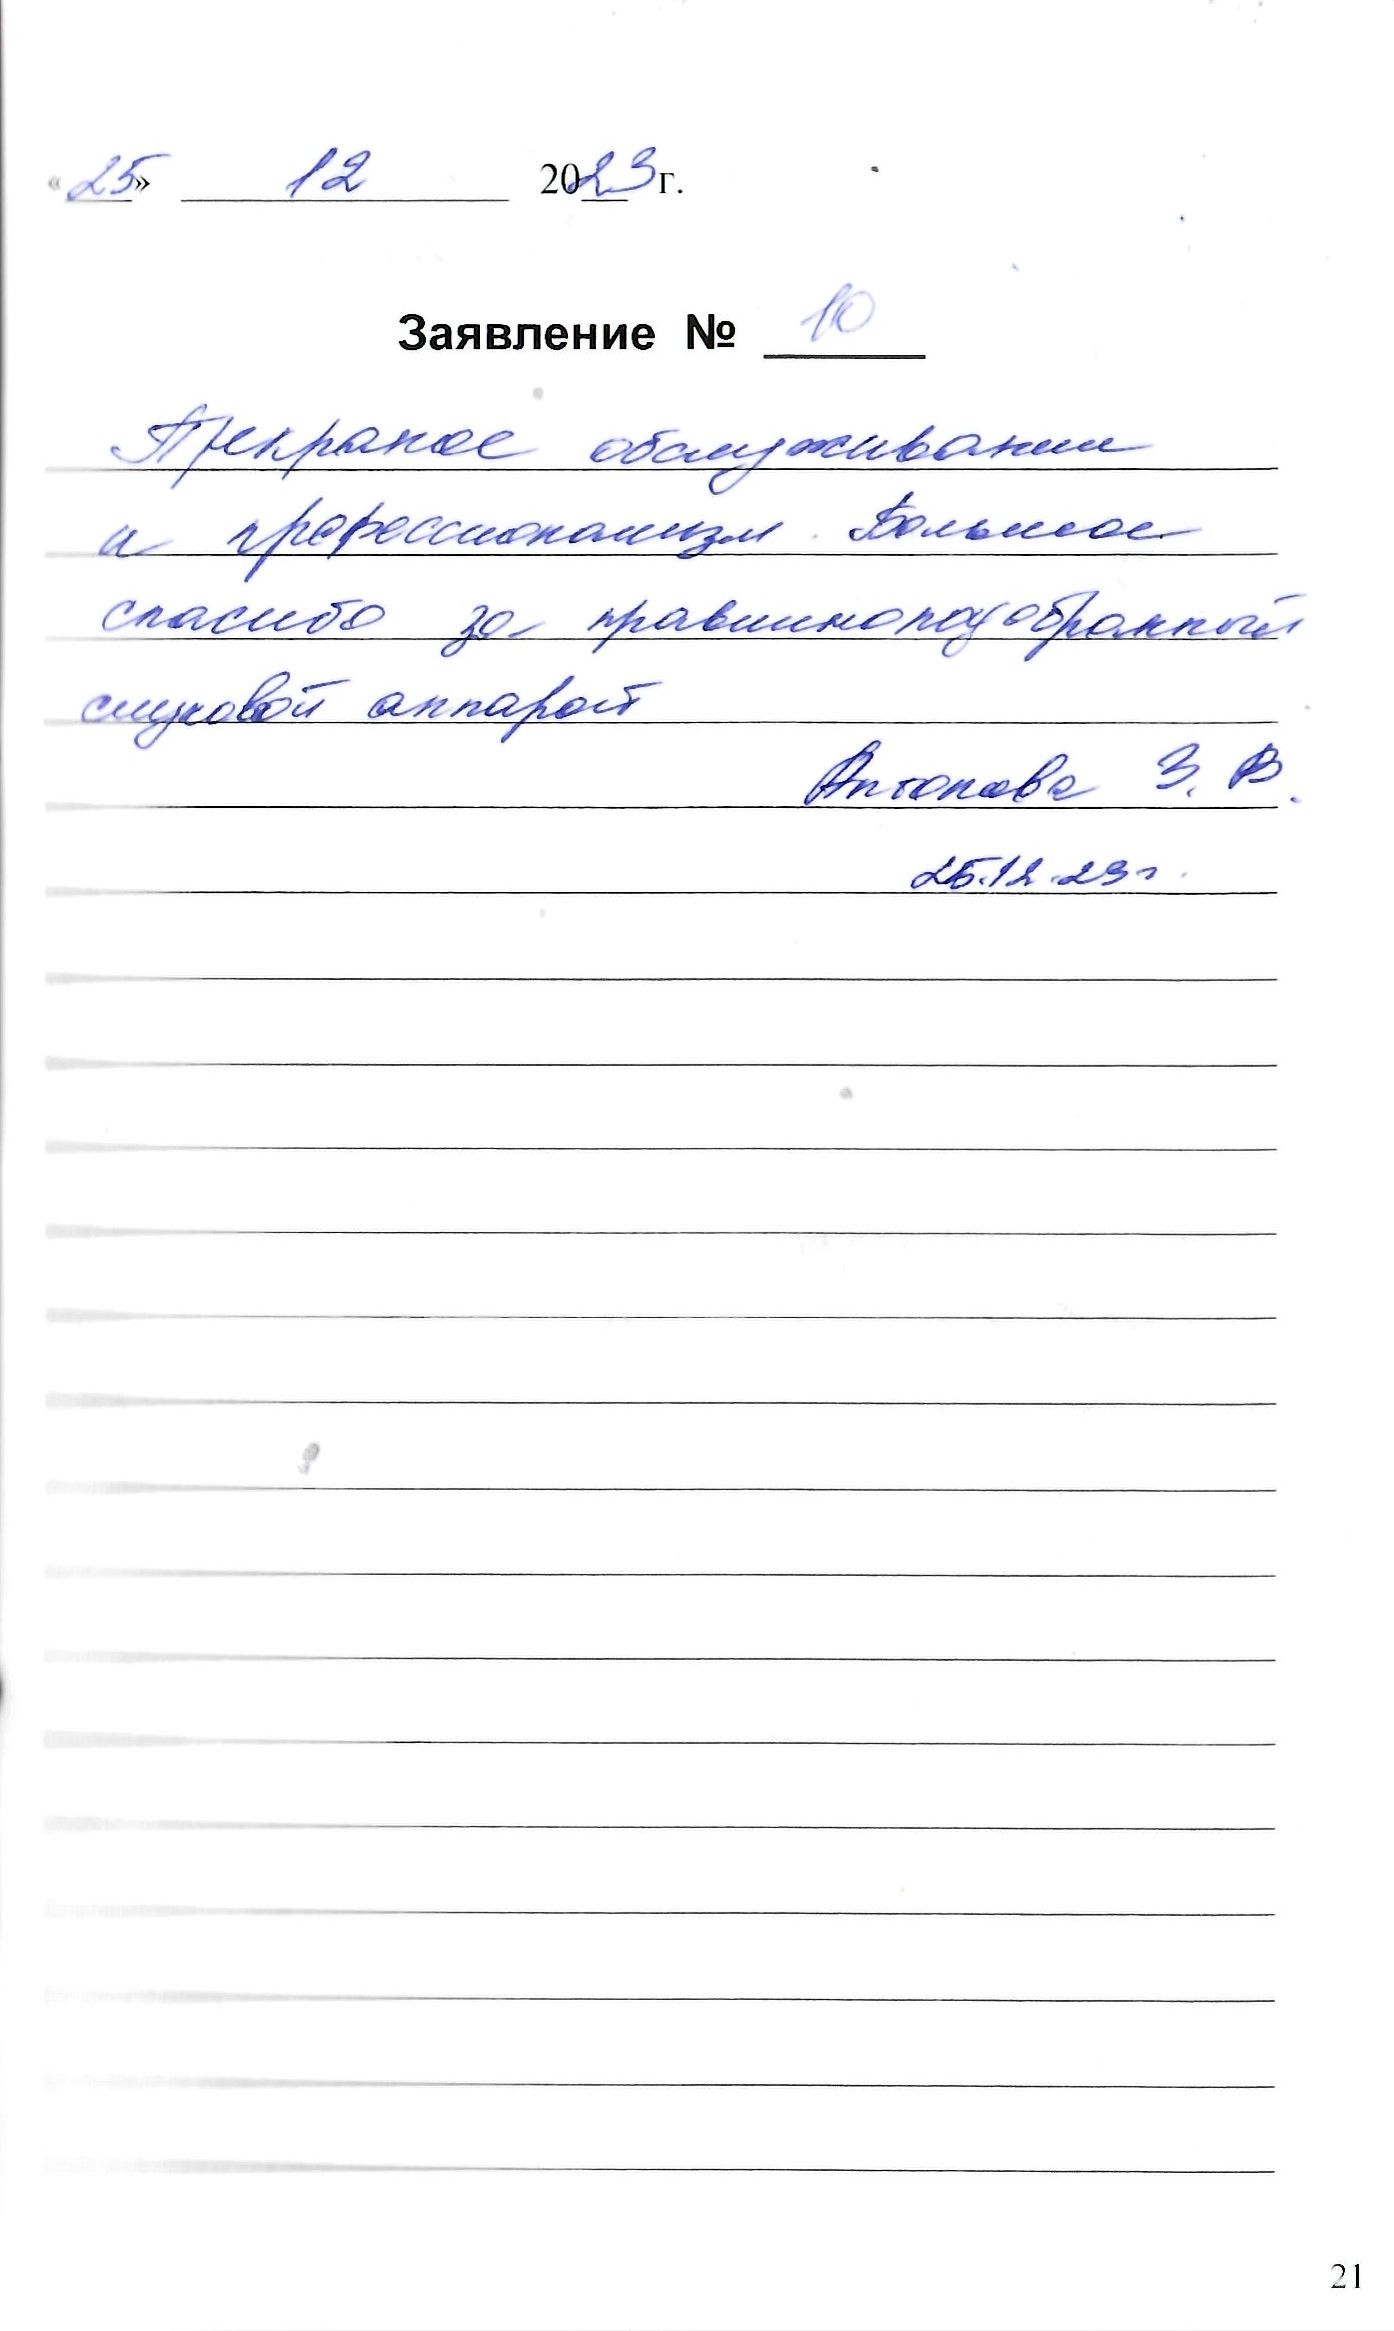 «25» 12 2023 г.
Заявление № 10
Прекраное обслуживание
и профессионализм. Большое
спасибо за правилиноподобранный
слуховой аппарат
Антонова З. В.
25.12.23г.
21